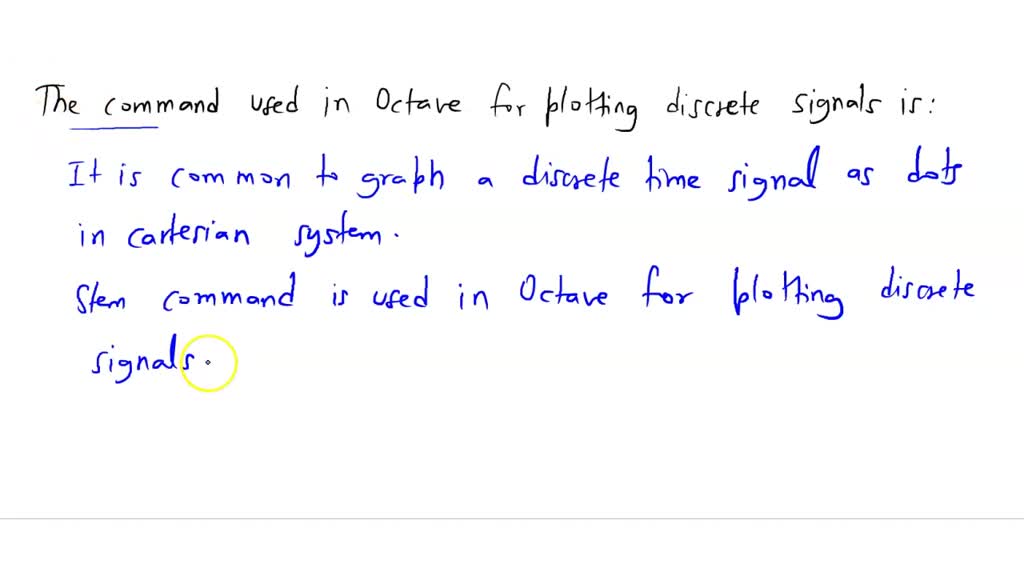 The command used in Octave for plotting discrete signals is:
It is common to graph a discrete time signal as dots
in cartesian system.
Stem command is used in Octave for plotting discrete
signals.